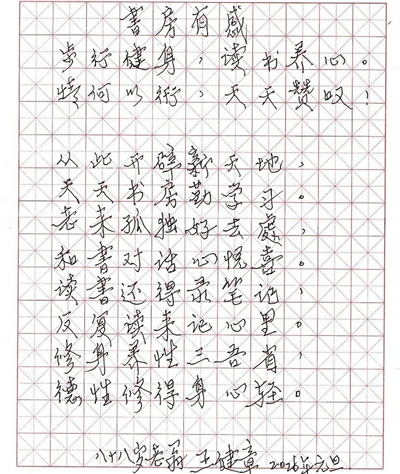 書房有感
步行健身，读书养心。
情何以衎，天天贊叹！
从此开辟新天地，
天天书房勤学习。
老来孤独好去處，
和書对话心悦喜。
读書还得录笔记，
反复读来记心里。
修身养性三吾省，
德性修得身心轻。
八十八岁老翁 王健章 2026年元旦